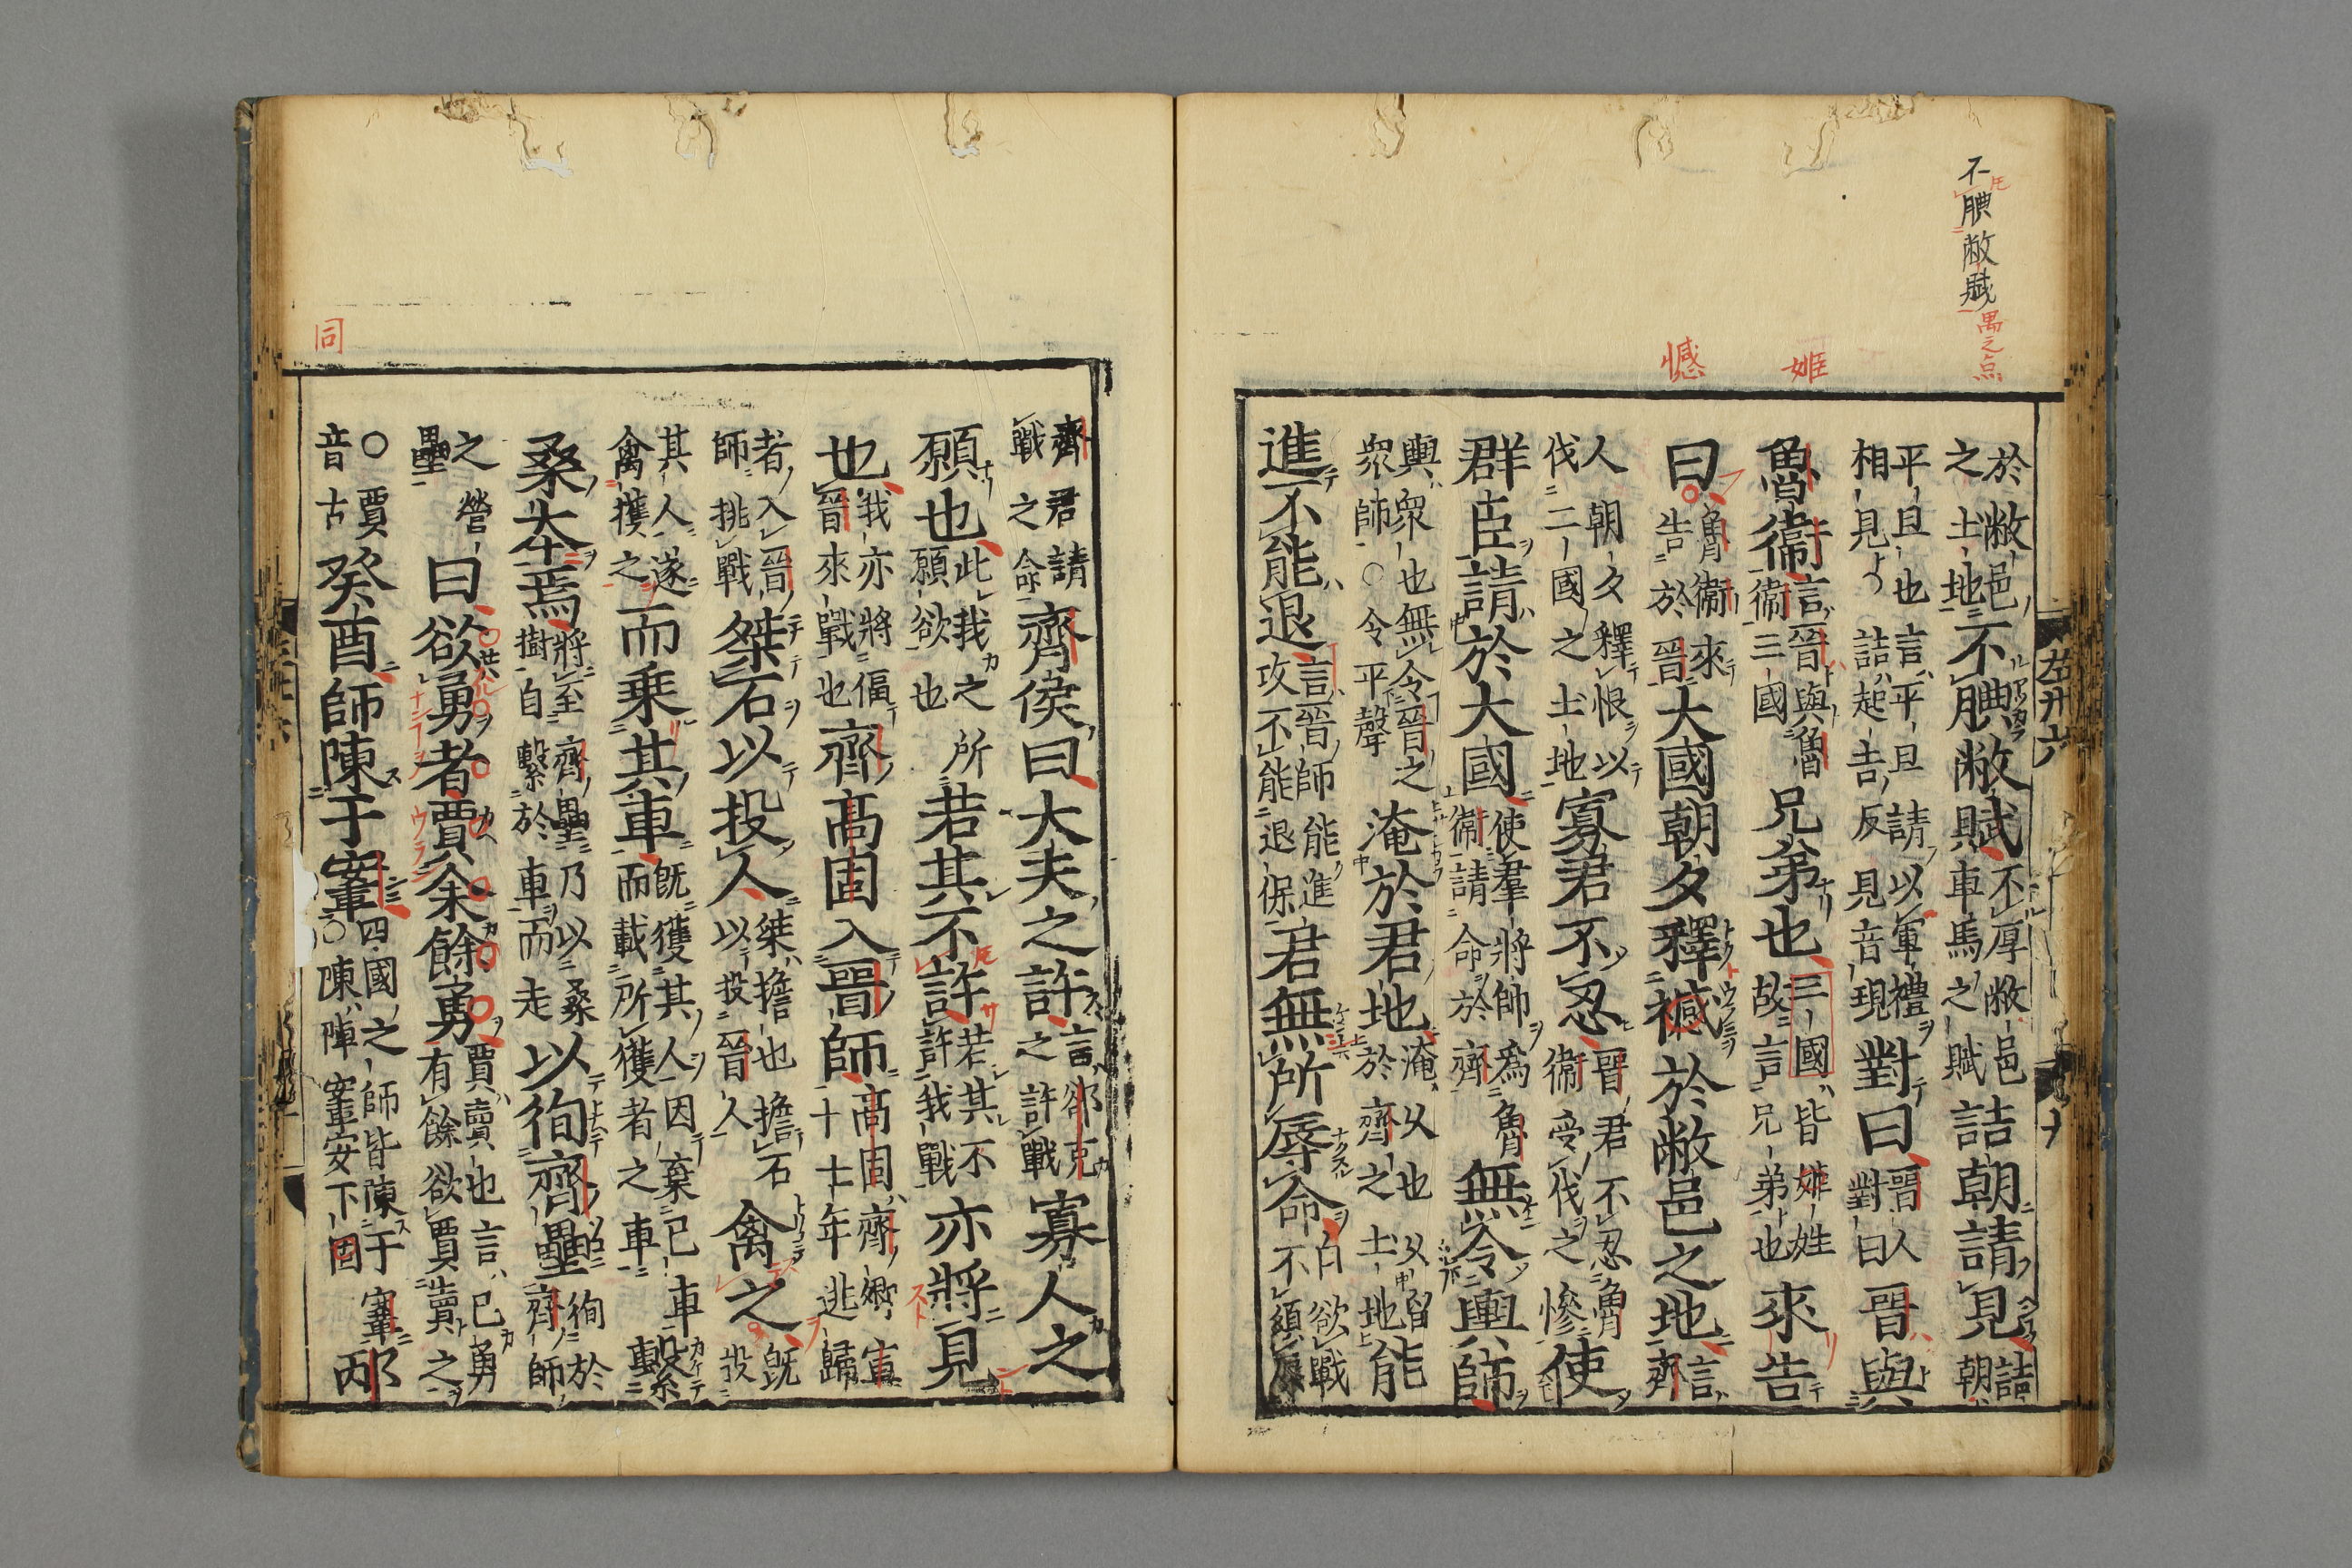 不腆敝賦
禺之点
姫
憾
於敝邑
之土地
不腆敝賦
不厚敝邑
車馬之賦
詰朝請見
詰
朝
平旦也言平旦請以軍禮
相見也〇詰起吉反見音現
對曰
晋人
對曰
晋與
魯衛
言晋與魯
衛三國
兄弟也
三國皆姫姓
故言兄弟也
來告
曰
魯衛來
告於晋
大國朝夕釋憾於敝邑之地
言
齊
人朝夕釋恨以
伐二國之土地
寡君不忍
晋君不忍魯
衛受伐之慘
使
群臣請於大國
使羣將帥爲魯
衛請命於齊
無令輿師
輿衆也無令晋之
衆師〇令平聲
淹於君地
淹久也久留
於齊之土地
能
進不能退
言晋師能進
攻不能退保
君無所辱命
白欲戰
不須辱
左廾六
十
齊君請
戰之命
齊侯曰大夫之許
言郤克
之許戰
寡人之
願也
此我之所
願欲也
若其不許
若其不
許我戰
亦將見
也
我亦將偪
晋來戰也
齊高固入晋師
高固齊卿宣
十七年逃歸
者入晋
師挑戰
桀石以投人
桀擔也擔石
以投晋人
禽之
既
投
其人遂
禽獲之
而乗其車
既獲其人因棄已車
而載所獲者之車
繫
桑本焉
將至齊壘乃以桑
樹自繫於車而走
以徇齊壘
徇於
齊師
之營
壘
曰欲勇者賈余餘勇
賈賣也言已勇
有餘欲賈賣之
〇賈
音古
癸酉師陳于鞌
四國之師皆陳于鞌
〇陳陣鞌安下同
邴
同